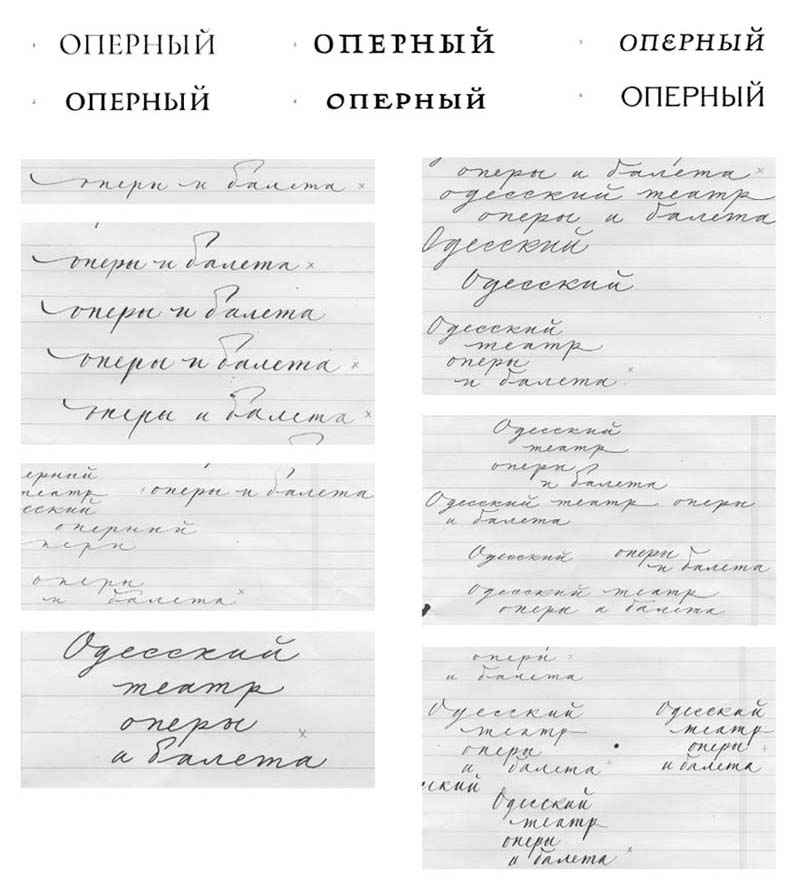 ОПЕРНЫЙ ОПЕРНЫЙ ОПЕРНЫЙ
ОПЕРНЫЙ ОПЕРНЫЙ ОПЕРНЫЙ
оперы и балета
оперы и балета
оперы и балета
оперы и балета
оперы и балета
ерный
театр оперы и балета
сский
оперный
опери
оперы
и балета
Одесский
театр
оперы
и балета
оперы и балета
одесский театр
оперы и балета
Одесский
Одесский
Одесский
театр
оперы
и балета
Одесский
театр
оперы
и балета
Одесский театр оперы
и балета
Одесский оперы
и балета
Одесский театр
оперы и балета
оперы
и балета
Одесский Одесский
театр театр
оперы оперы
и балета и балета
ский
Одесский
театр
оперы
и балета